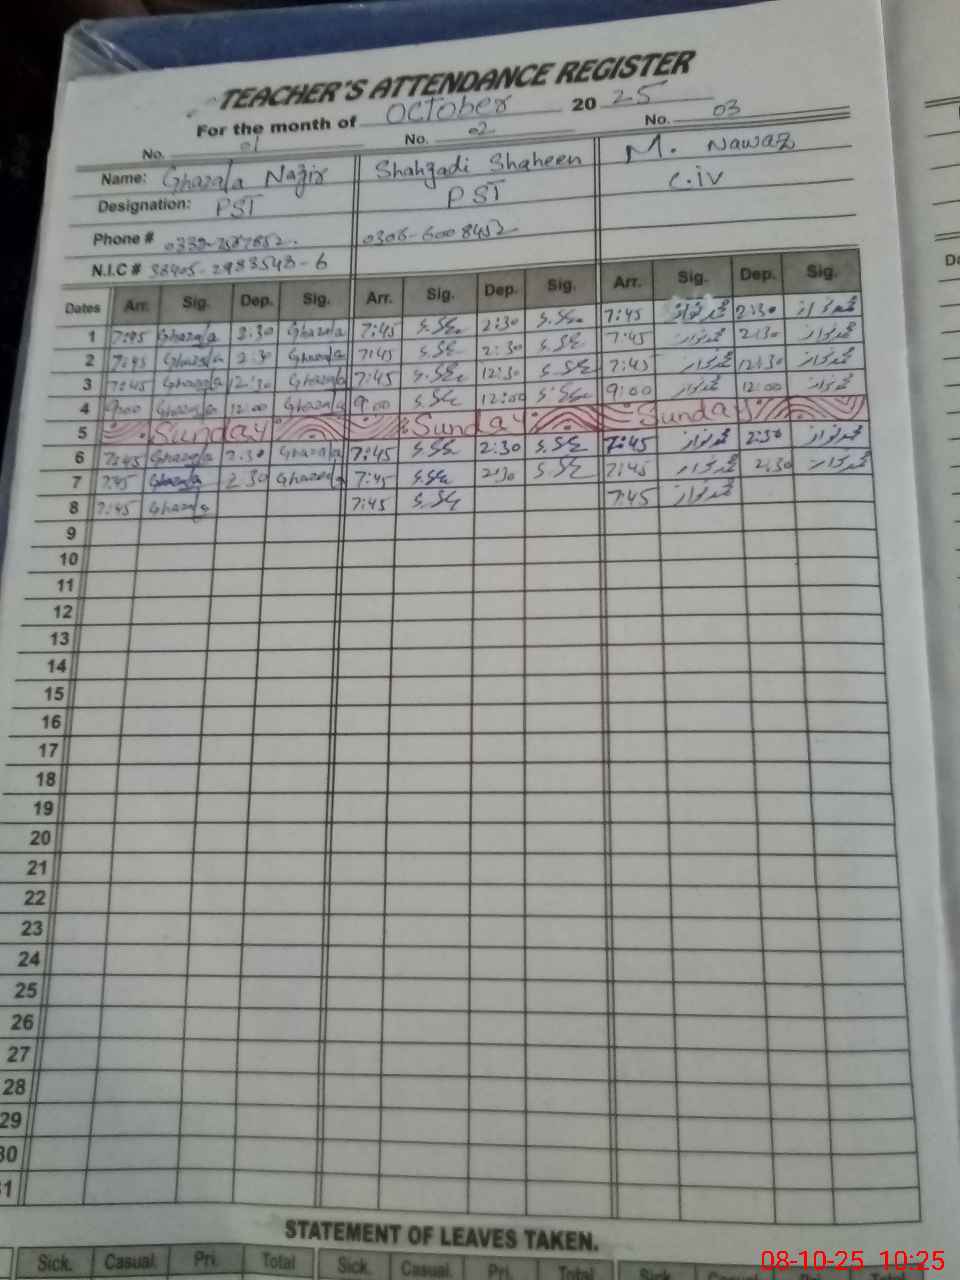 TEACHER'S ATTENDANCE REGISTER
For the month of October 2025
No. 01 No. 02 No. 03
Name: Ghazala Nazir Shahzadi Shaheen M. Nawaz
Designation: PST PST C.iv
Phone # 0306-6008452
N.I.C # 38405-2983543-6
Dates Arr. Sig. Dep. Sig. Arr. Sig. Dep. Sig. Arr. Sig. Dep. Sig.
1 7:45 Ghazala 2:30 Ghazala 7:45 2:30 7:45 محمد نواز 2:30 محمد نواز
2 7:45 Ghazala 2:30 Ghazala 7:45 2:30 7:45 محمد نواز 2:30 محمد نواز
3 7:45 Ghazala 12:30 Ghazala 7:45 12:30 7:45 محمد نواز 12:30 محمد نواز
4 9:00 Ghazala 12:00 Ghazala 9:00 12:00 9:00 محمد نواز 12:00 محمد نواز
5 Sunday Sunday Sunday
6 7:45 Ghazala 2:30 Ghazala 7:45 2:30 7:45 محمد نواز 2:30 محمد نواز
7 7:45 Ghazala 2:30 Ghazala 7:45 2:30 7:45 محمد نواز 2:30 محمد نواز
8 7:45 Ghazala 7:45 7:45 محمد نواز
9
10
11
12
13
14
15
16
17
18
19
20
21
22
23
24
25
26
27
28
29
30
31
STATEMENT OF LEAVES TAKEN.
Sick. Casual. Pri. Total Sick. Casual. Pri. Total Sick. Casual.
08-10-25 10:25